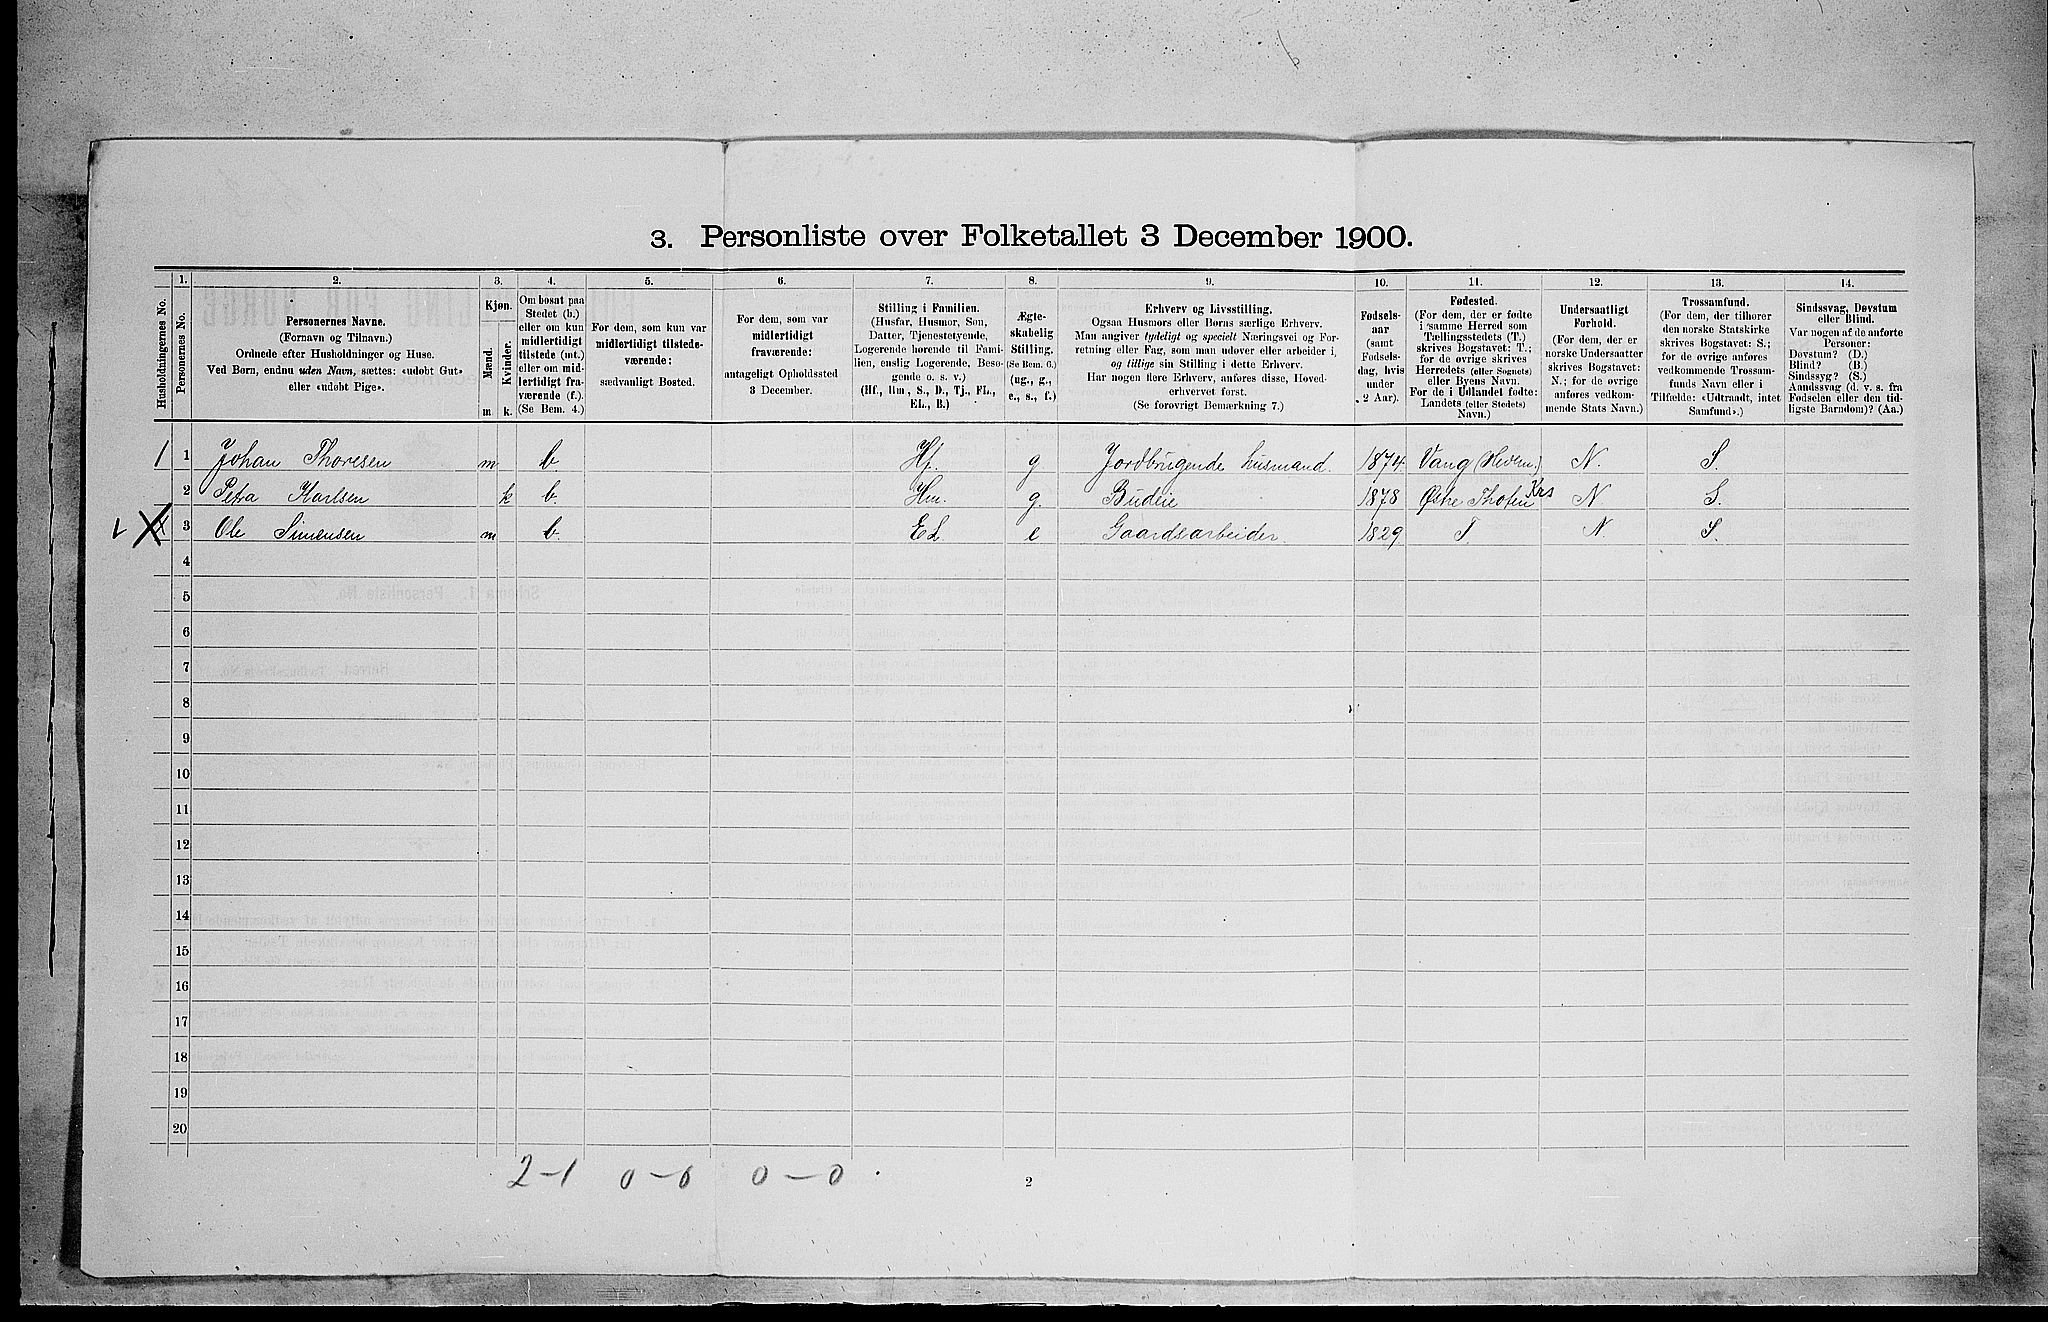 3. Personliste over Folketallet 3 December 1900.
1. 2. 3. 4. 5. 6. 7. 8. 9. 10. 11. 12. 13. 14.
Husholdningernes No.
Personernes No.
Personernes Navne.
(Fornavn og Tilnavn.)
Ordnede efter Husholdninger og Huse.
Ved Børn, endnu uden Navn, sættes: «udøbt Gut»
eller «udøbt Pige».
Kjøn.
Mænd.
Kvinder.
m k.
Om bosat paa
Stedet (b.)
eller om kun
midlertidigt
tilstede (mt.)
eller om mid-
lertidigt fra-
værende (f.).
(Se Bem. 4.)
For dem, som kun var
midlertidigt tilstede-
værende:
sædvanligt Bosted.
For dem, som var
midlertidigt
fraværende:
antageligt Opholdssted
3 December.
Stilling i Familien.
(Husfar, Husmor, Søn,
Datter, Tjenestetyende,
Logerende hørende til Fami-
lien, enslig Logerende, Besø-
gende o. s. v.)
(Hf., Hm., S., D., Tj., FL.,
EL., B.)
Ægte-
skabelig
Stilling.
(Se Bem. 6.)
(ug., g.,
e., s., f.)
Erhverv og Livsstilling.
Ogsaa Husmors eller Børns særlige Erhverv.
Man angiver tydeligt og specielt Næringsvei og For-
retning eller Fag, som man udøver eller arbeider i,
og tillige sin Stilling i dette Erhverv.
Har nogen flere Erhverv, anføres disse, Hoved-
erhvervet først.
(Se forøvrigt Bemærkning 7.)
Fødsels-
aar
(samt
Fødsels-
dag, hvis
under
2 Aar).
Fødested.
(For dem, der er fødte
i samme Herred som
Tællingsstedets (T.)
skrives Bogstavet: T.;
for de øvrige skrives
Herredets (eller Sognets)
eller Byens Navn.
For de i Udlandet fødte:
Landets (eller Stedets)
Navn.)
Undersaatligt
Forhold.
(For dem, der er
norske Undersaatter
skrives Bogstavet:
N.; for de øvrige
anføres vedkom-
mende Stats Navn.)
Trossamfund.
(For dem, der tilhører
den norske Statskirke
skrives Bogstavet: S.;
for de øvrige anføres
vedkommende Trossam-
funds Navn eller i
Tilfælde: «Udtraadt, intet
Samfund».)
Sindssvag, Døvstum
eller Blind.
Var nogen af de anførte
Personer:
Døvstum? (D.)
Blind? (B.)
Sindssyg? (S.)
Aandssvag (d. v. s. fra
Fødselen eller den tid-
ligste Barndom)? (Aa.)
1 1 Johan Thoresen m b. Hf. g Jordbrugende husmand. 1874. Vang (Hedem.) N. S.
2 Petra Karlsen k b. Hm. g. Budeie 1878 Østre Thoten Krs N S.
X 3 Ole Simensen m b. EL e Gaardsarbeider 1829 T. N. S.
4
5
6
7
8
9
10
11
12
13
14
15
16
17
18
19
20
2-1 0-0 0-0
2